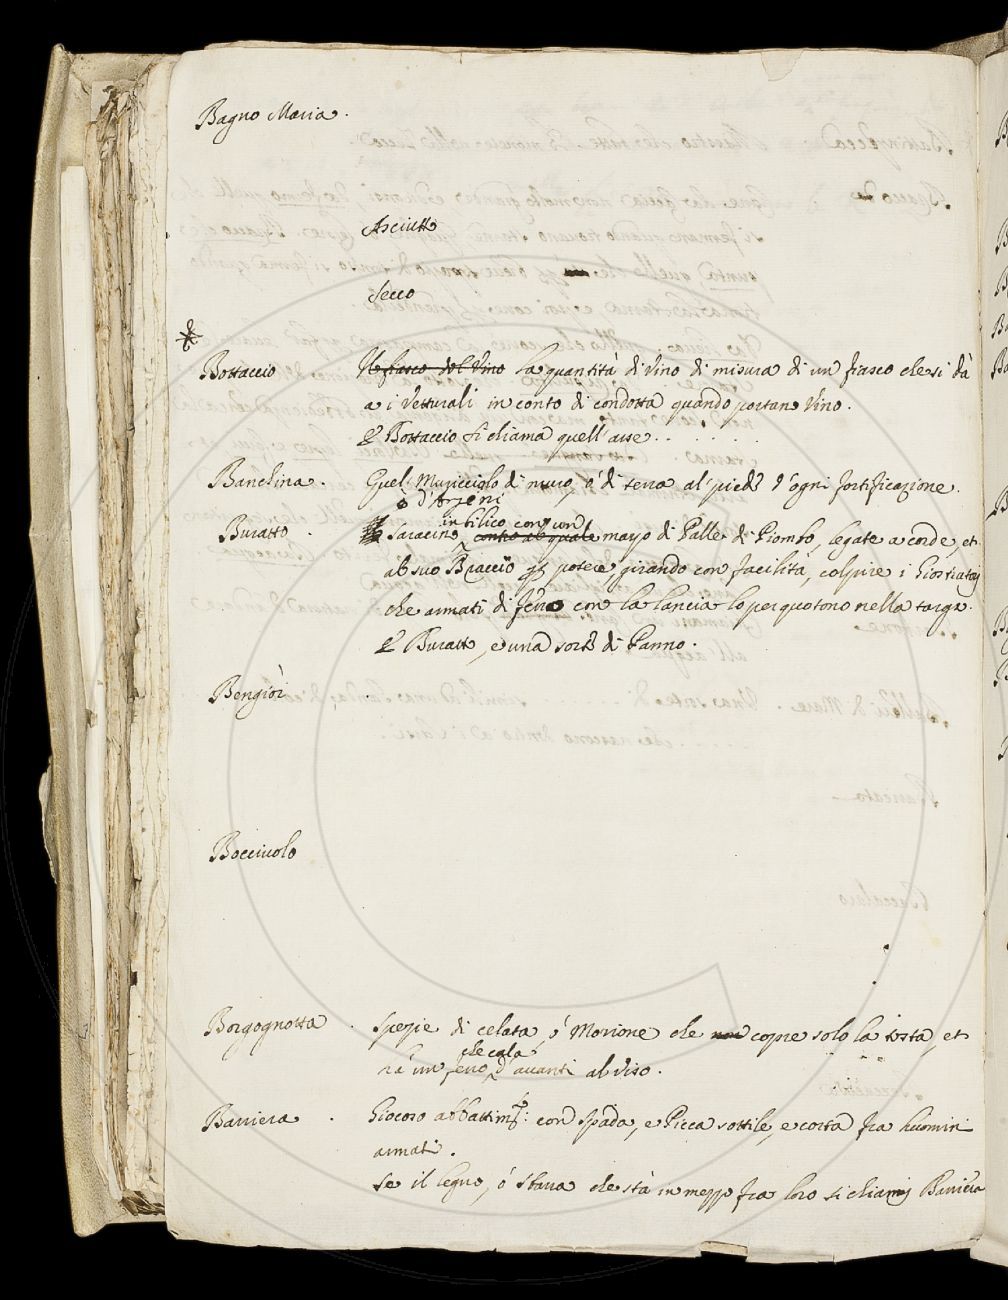 Bagno Maria.
Asciutto
secco
Bottaccio Il fiasco del Vino la quantità di Vino di misura di un fiasco che si dà
a i Vetturali in conto di condotta quando portan Vino.
E Bottaccio si chiama quell'arse. . . . . . .
Banchina. Quel Muricciolo di muro ò di terra al piede d'ogni fortificazione.
ò d'Argeni
in bilico con un
Buratto. Saracino contro al quale mazzo di Palle di Piombo, legate a corde, et
al suo Braccio p potere, girando con facilità, colpire i Giostratoi
che armati di ferro con la lancia lo perquotono nella targa.
E Buratto, e una sorte di Panno.
Bengioì
Bocciuolo
Borgognotta. spezie di celata, ò Morione che non copre solo la testa, et
che cala
ha un ferro d'avanti al viso.
Barriera. Giocoso abbattim.to: con spada, e Picca sottile, e corta fra huomini
armati.
se il legno, ò sbarra che stà in mezzo fra loro si chiami Barriera